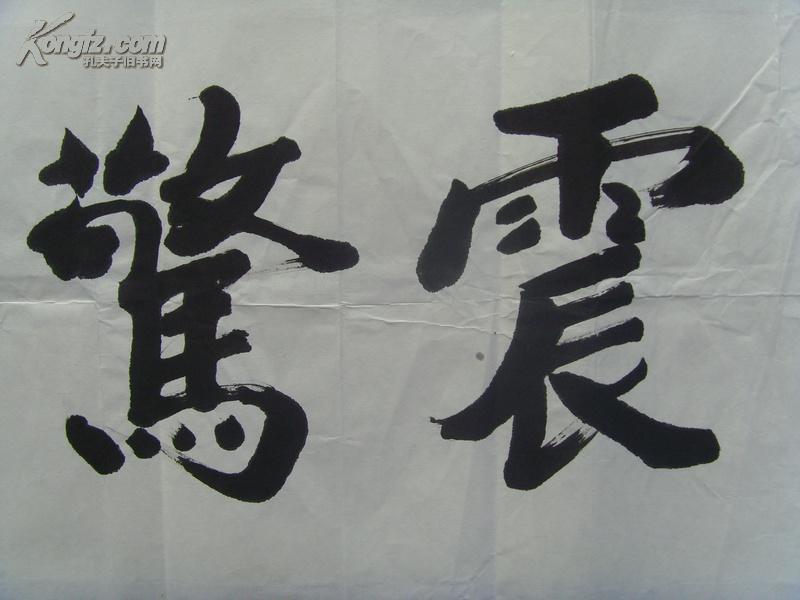 Kongfz.com
孔夫子旧书网
震驚